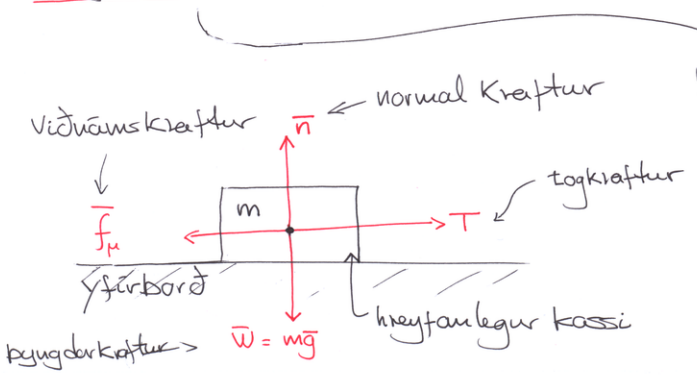 normal kraftur
viðnámskraftur
n̄
togkraftur
m
f̄μ
T
yfirborð
hreyfanlegur kassi
þyngdarkraftur > w̄ = mḡ